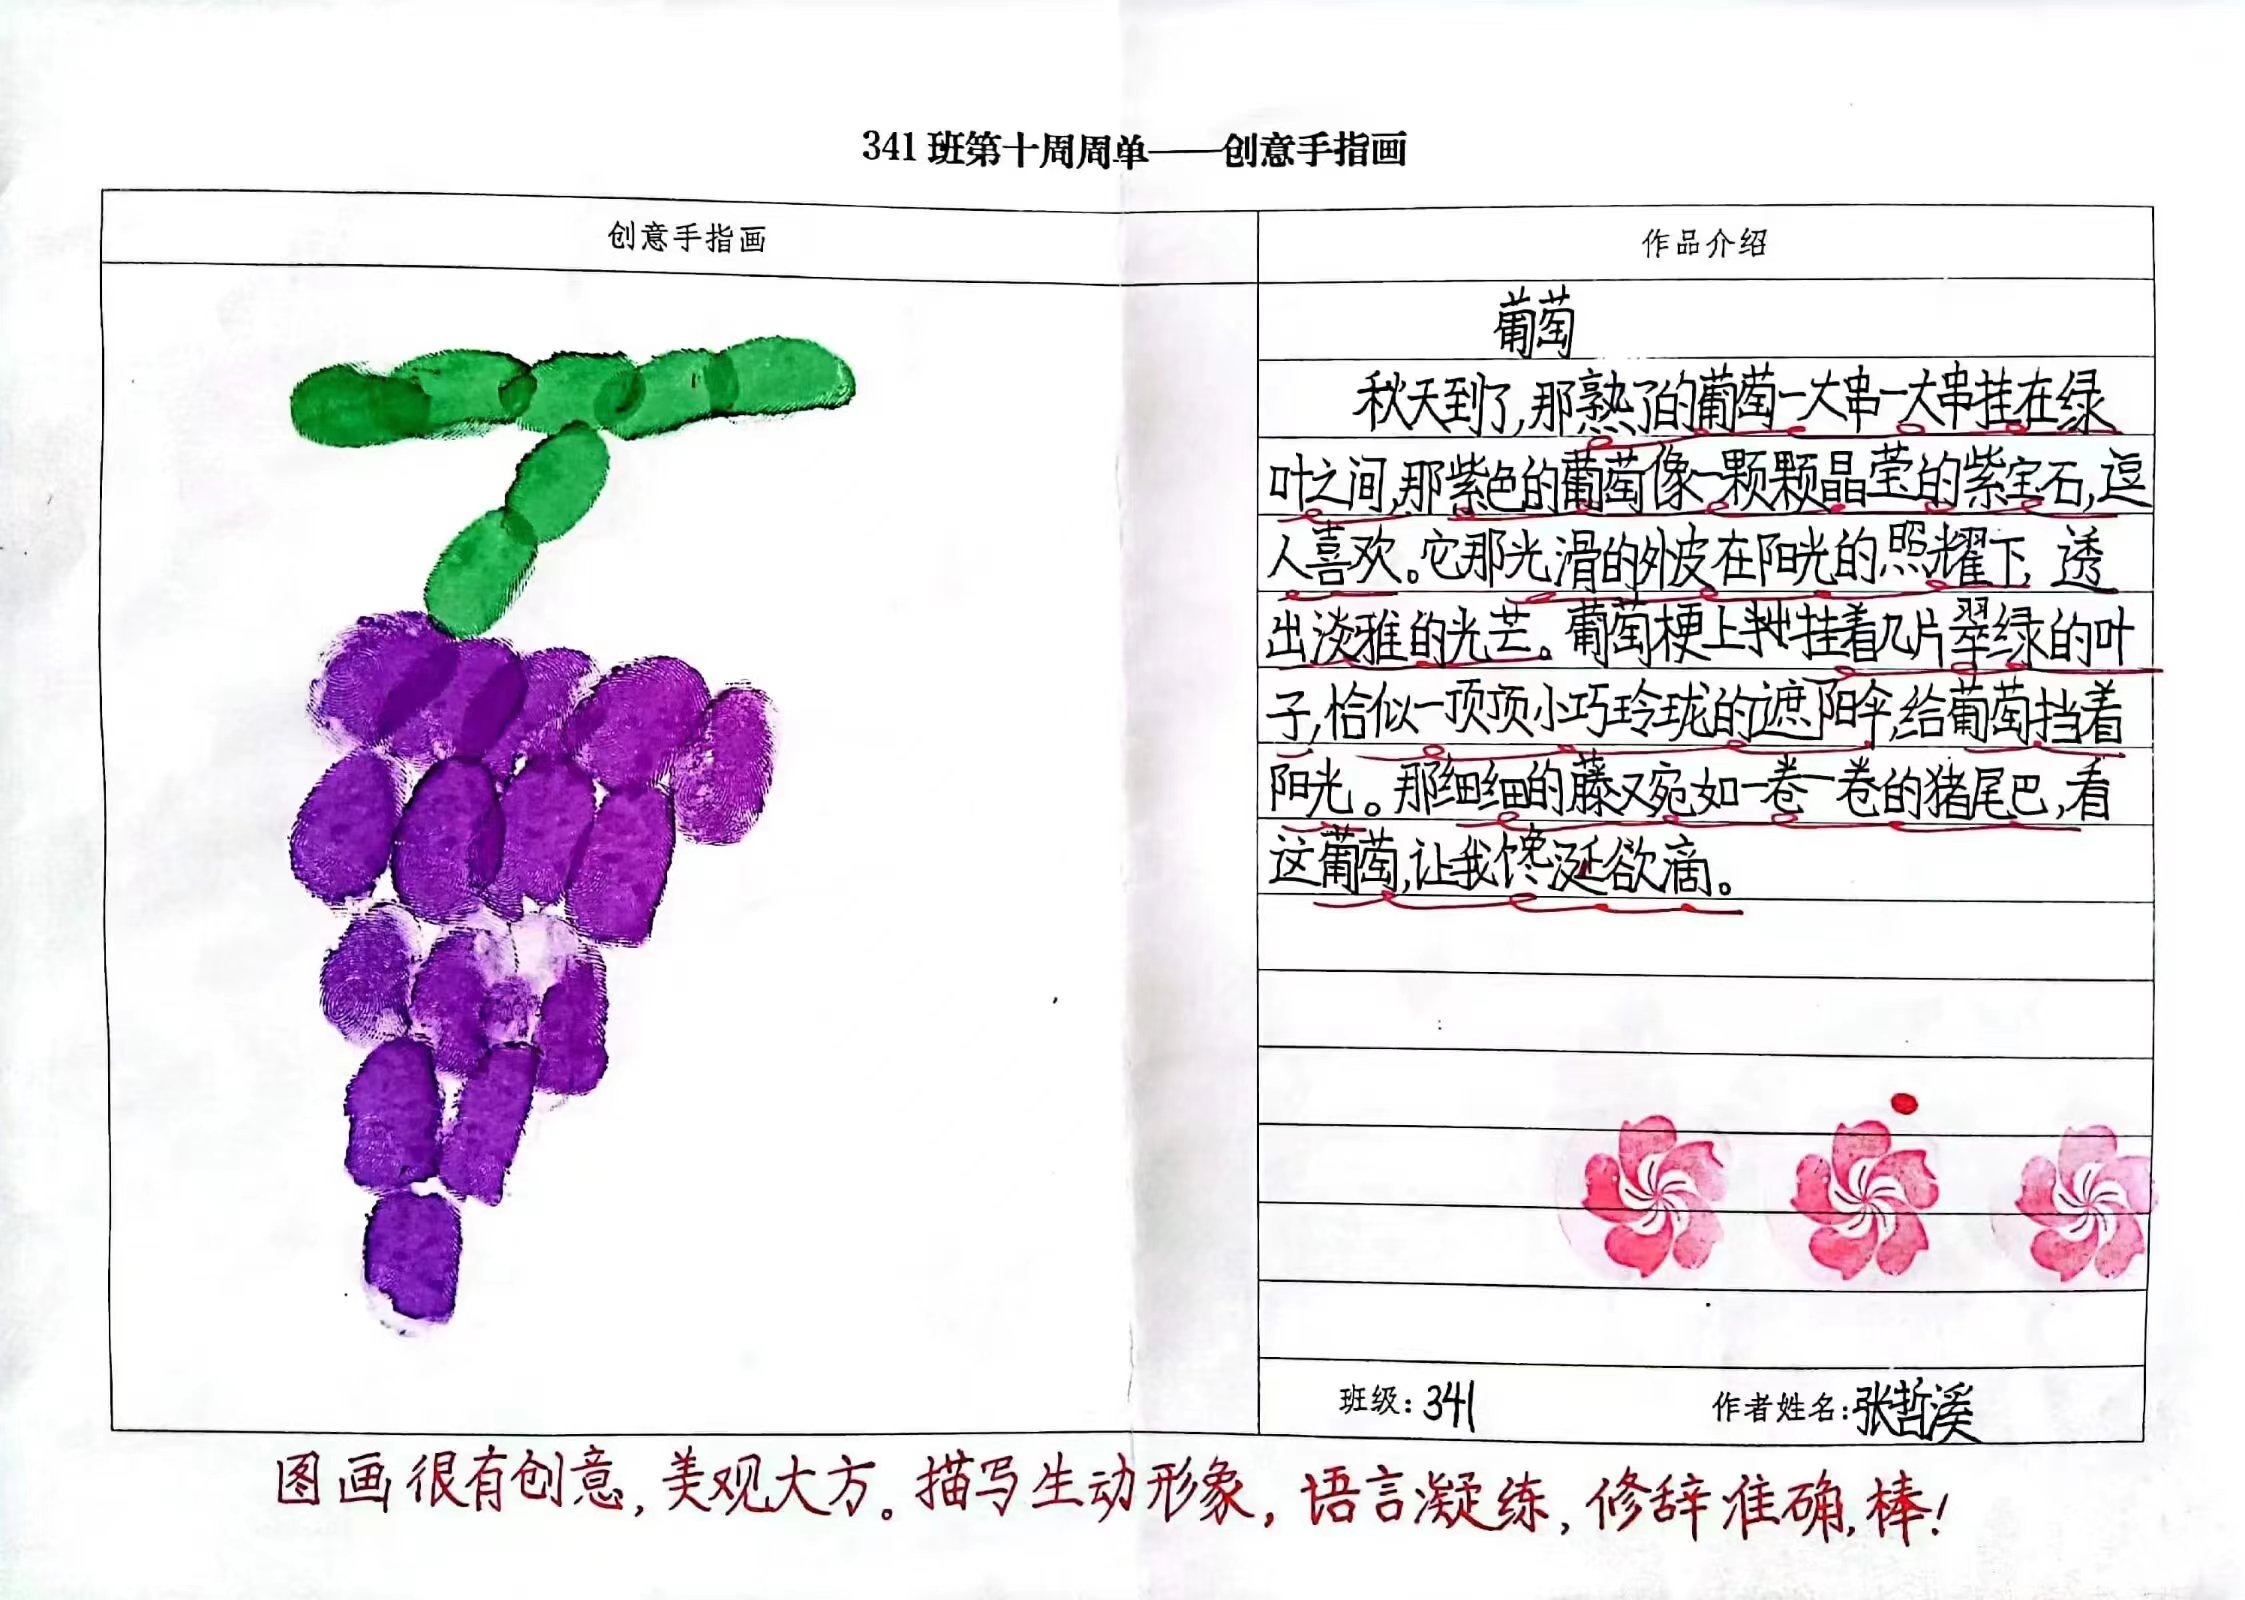 341班第十周周单——创意手指画
创意手指画
作品介绍
葡萄
秋天到了,那熟了的葡萄一大串一大串挂在绿
叶之间,那紫色的葡萄像一颗颗晶莹的紫宝石,逗
人喜欢。它那光滑的外皮在阳光的照耀下,透
出淡雅的光芒。葡萄梗上挂着几片翠绿的叶
子,恰似一顶顶小巧玲珑的遮阳伞,给葡萄挡着
阳光。那细细的藤又宛如一卷一卷的猪尾巴,看
这葡萄,让我馋涎欲滴。
班级:341
作者姓名:张哲溪
图画很有创意,美观大方。描写生动形象,语言凝练,修辞准确,棒!